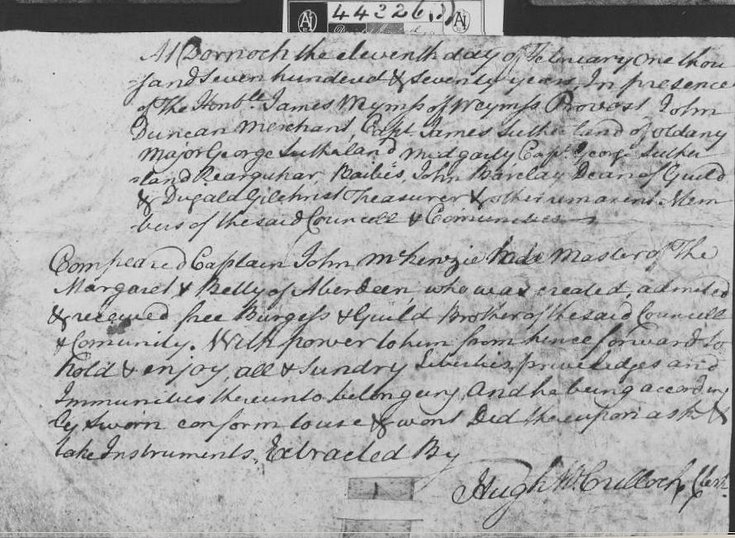 44226
At Dornoch the eleventh day of February One thou
sand Seven hundered & Seventy years, In presence
of The Honble. James Wymss of Weymss Provost John
Duncan Merchant, Capt. James Sutherland of
Major George Sutheland, midgarty Capt. George Suther
-land Rearquhar Bailies, John Barclay Dean of Guild
& Dugald Gilchrist Treasurer & other remanent Mem
bers of the said Councell & Comunities
Compeared Captain John McKenzie Master of The
Margaret & Betty of Aberdeen, who was created, admited
& received free Burgess & Guild Brother of the said Councell
& Comunity. With power to him from hence forward to
hold & enjoy, all & Sundry Liberties, priviledges and
Immunities thereunto belongeing, And he being according
ly Sworn conform to use & wont Did thereupon ask &
take Instruments, Extracted By
Hugh McCulloch Clerk